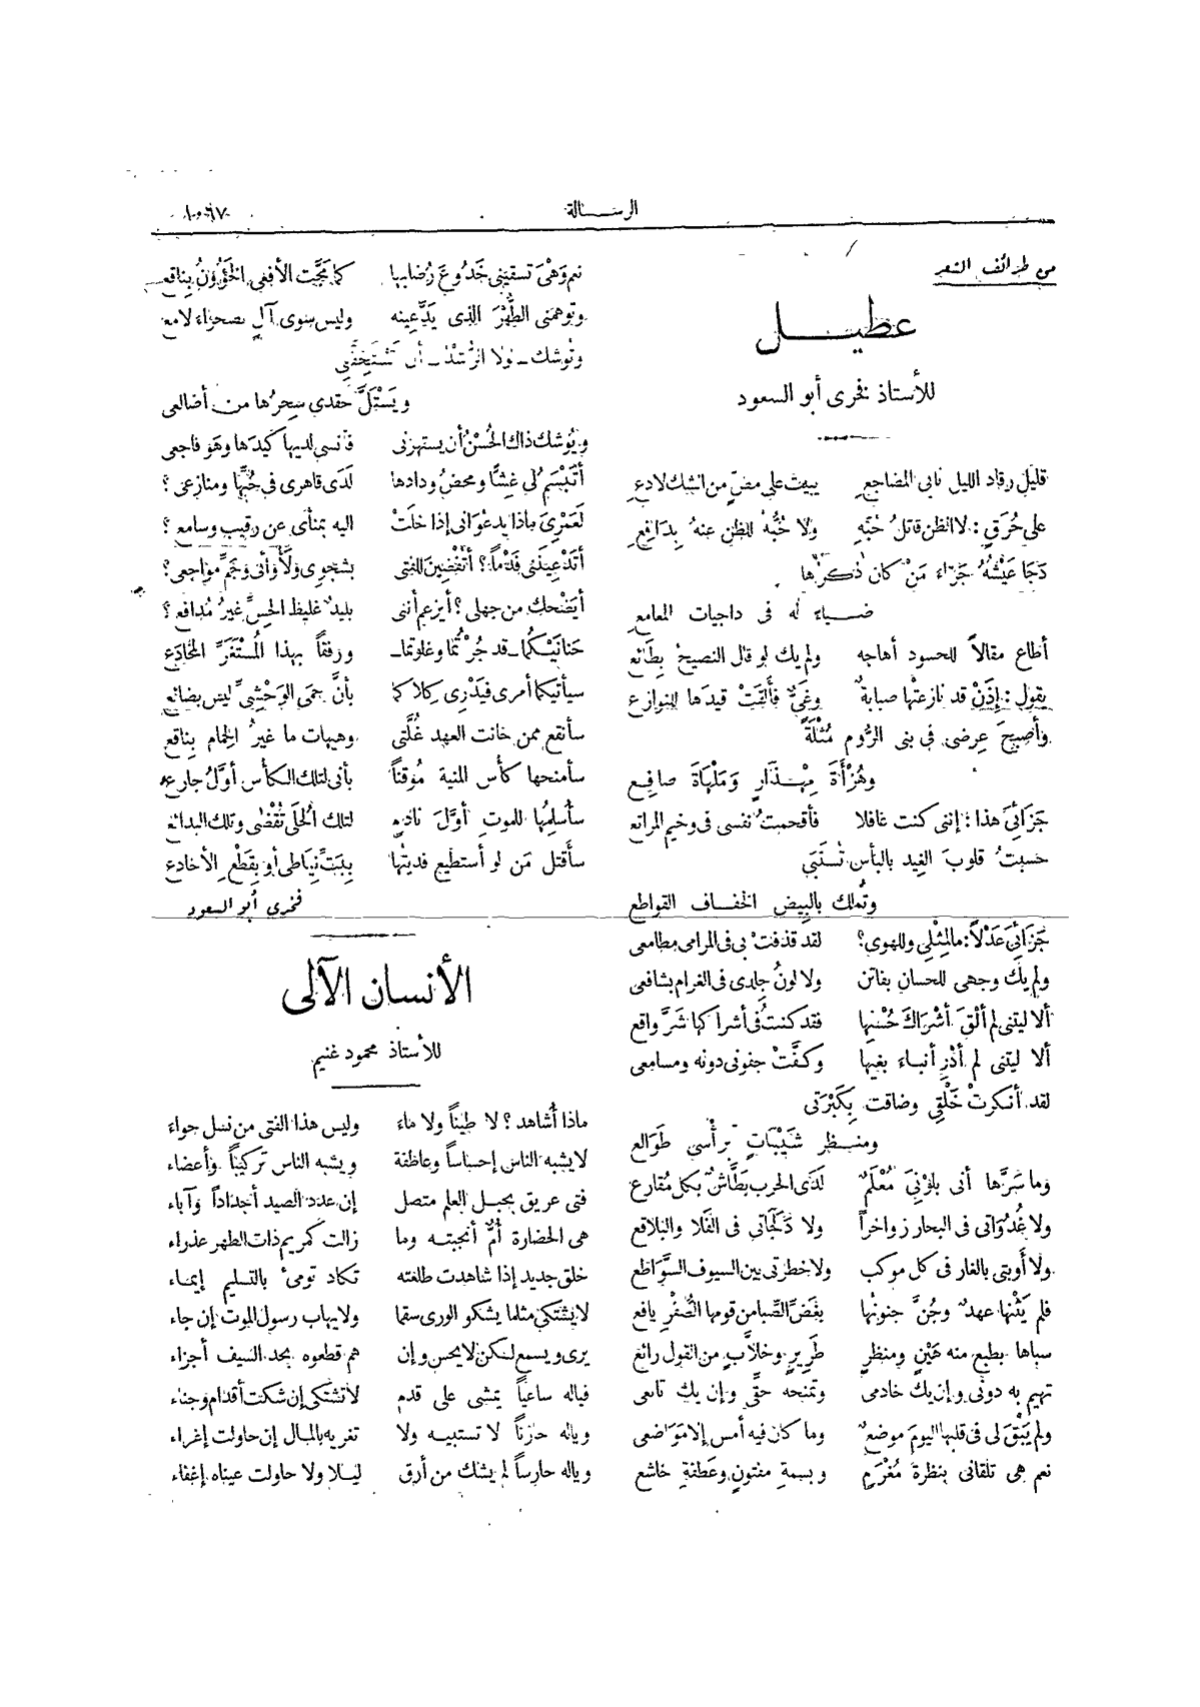 الرسالة
١٠٦٧
من طرائف الشعر
عطيل
للأستاذ فخرى أبو السعود
قليل رقاد الليل نابى المضاجع يبيت على مضٍ من الشك لادع
على حُرَقٍ: لا الظن قاتلُ حبّهِ ولا حُبُّه للظن عنهُ بِدَافِع
دَجَا عَيْشُهُ جَزاءَ مَنْ كان ذكرُها
ضياءً له فى داجيات المعامع
أطاع مقالاً للحسود أهاجه ولم يك لو قال النصيحَ بِطَائع
يقول: إذَنْ قد نازعتْها صبابةٌ وغىٌّ فألقَتْ قيدَها للنوازع
وأصبحَ عِرضى فى بنى الرُّوم مُثْلَةً
وهُزْأَةَ مِهْذَارٍ وَمَلْهاَةَ صافِع
جَزَائىَ هذا: إننى كنت غافلا فأقحمتُ نفسى فى وخيم المراتع
حسبتُ قلوبَ الغِيد بالبأس تُستَبَى
وتُملك بالبِيض الخفاف القواطع
جَزَائىَ عَدْلاً: مالمِثْلى وللهوى؟ لقد قذفتْ بى فى المرامى مطامعى
ولم يك وجهى للحسان بفاتن ولا لونُ جِلدى فى الغرام بشافعى
ألا ليتنى لم ألْقَ أشْرَاكَ حُسْنِها فقد كنتُ فى أشراكها شَرَّ واقع
ألا ليتنى لم أدْرِ أنباءَ بغيها وكفَّتْ جفونى دونه ومسامعى
لقد أنكرتْ خَلْقِى وضاقت بِكَبْرَتى
ومنظر شَيْباتٍ برأسى طَوَالع
وما سَرَّها أنى بلوْنِىَ مُعْلَمٌ لَدَى الحرب بَطَّاشٌ بكل مُقارع
ولا غُدُوَاتى فى البحار زواخراً ولا دَلَجَاتى فى الفَلا والبلاقع
ولا أوبتى بالغار فى كل موكب ولا خطرتى بين السيوف السَّوَاطع
فلم يَثْنِها عهدٌ وجُنَّ جنونُها بِغَضِّ الصِّبا من قومها الصُّفْرِ يافع
سباها بطبع منه هَيْنٍ ومنظرٍ طَرِيرٍ وخلاَّبٍ من القول رائع
تهيم به دونى وإن يك خادمى وتمنحه حقِّى وإن يك تابعى
ولم يَبْقَ لى فى قلبها اليومَ موضعٌ وما كان فيه أمس إلا مَوَاضعى
نعم هى تلقانى بنظرة مُغْرَمٍ وبسمةِ مفتونٍ وعَطفةِ خاشع
نعم وَهْىَ تسقينى خَدُوعَ رُضابها كما مَجَّت الأفعى الخَؤُونُ بِناقع
وتوهمنى الطُّهْرَ الذى يَدَّعينه وليس سوى آلٍ بصحراء لامع
وتُوشك ــ لولا الرُّشْدُ ــ أن تَسْتَخِفَّنِى
ويَسْتَلَّ حقدى سِحرُها من أضالعى
ويُوشك ذاك الحُسْنُ أن يستهزنى فأنسى لديها كيدَها وهو فاجعى
أَتَبْسِمُ لى غِشًّا ومحضُ ودادها لَدَى قاهرى فى حُبِّها ومنازعى؟
لَعَمْرِىَ ماذا يدعوانى إذا خلَتْ اليه بمنأى عن رقيب وسامع؟
أتَدْعينَنى فَدْماً؟ أتُفْضِينَ للفتى بشجوى ولأْوائى وجَمِّ مَوَاجعى؟
أيَضْحك من جهلى؟ أيزعم أننى بليدٌ غليظ الحسِّ غيرُ مُدافع؟
حَنانَيْكُما ــ قد جُرْتُما وغلوتما ــ ورفقاً بهذا المُسْتَغَرِّ المُخادَع
سيأتيكما أمرى فيَدْرِى كِلاكما بأنَّ حِمَى الوَحْشِىِّ ليس بضائع
سأنقع ممن خانت العهد غُلَّتى وهيهات ما غيرُ الِحمام بِناقع
سأمنحها كأس المنية مُوقناً بأنى لتلك الكأس أوَّلُ جارع
سأُسلِمُها للموت أوَّلَ نادمٍ لتلك الُحلَى تُقْضَى وتلك البدائع
سأَقتل مَن لو أستطيع فديتُها بِبَتِّ نِياطى أو بِقَطْعِ الأخادع
فخرى أبو السعود
الأنسان الآلى
للأستاذ محمود غنيم
ماذا أُشاهد؟ لا طيناً ولا ماء وليس هذا الفتى من نسل حواء
لا يشبه الناس إحساساً وعاطفة ويشبه الناس تركيباً وأعضاء
فتى عريق بحبل العلم متصل إن عدد الصيد أجداداً وآباء
هى الحضارة أمٌّ أنجبته وما زالت كمريم ذات الطهر عذراء
خلق جديد إذا شاهدت طلعته تكاد تومىء بالتسليم إيماء
لا يشتكى مثلما يشكو الورى سقما ولا يهاب رسول الموت إن جاء
يرى ويسمع لكن لا يحس وإن هم قطعوه بحد السيف أجزاء
فياله ساعياً يمشى على قدم لا تشتكى إن شكت أقدام وجناء
وياله حازناً لا تستبيه ولا تغريه بالمال إن حاولت إغراء
وياله حارساً لم يشك من أرق ليلا ولا حاولت عيناه إغفاء